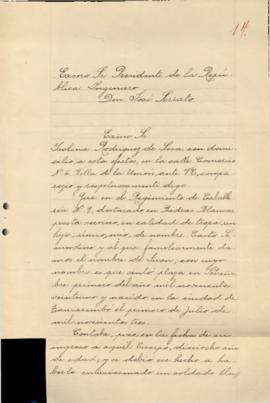 14.
Exmo Sr Presidente de la Repú
blica Ingeniero
Don José Serrato
Exmo Sr
Rodriguez de Sosa, con domi
cilio a estos efectos, en la calle Comercio
Nº 6 Villa de la Union, ante VE, compa
rezco y respetuosamente digo:
Que en el Regimiento de Caballe
ria Nº 9, destacado en Piedras Blancas
presta servicio, en calidad de tropa un
hijo, mio, de nombre Casto
y al que familiarmente da
mos el nombre de con cuyo
nombre es que sentó plaza en
primero del año mil novecientos
veintiuno y nacido en la ciudad de
Tacuarembó el primero de Julio de
mil novecientos tres.
Contaba, pues, en la fecha de su
ingreso a aquel Cuerpo, dieciocho años
de edad, y se debió ese hecho a ha
berlo un soldado